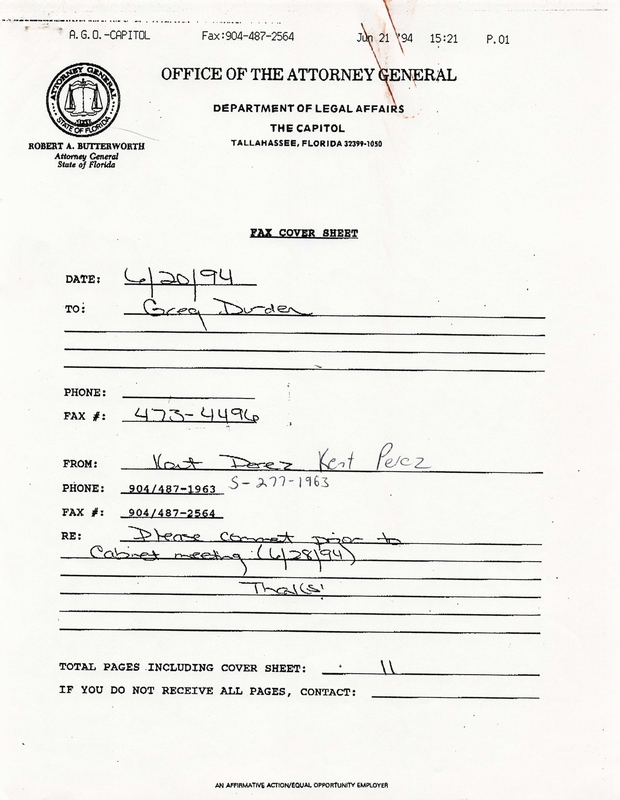 A.G.O.-CAPITOL Fax:904-487-2564 Jun 21 '94 15:21 P.01
OFFICE OF THE ATTORNEY GENERAL
DEPARTMENT OF LEGAL AFFAIRS
THE CAPITOL
TALLAHASSEE, FLORIDA 32399-1050
ATTORNEY GENERAL
STATE OF FLORIDA
ROBERT A. BUTTERWORTH
Attorney General
State of Florida
FAX COVER SHEET
DATE: 6/20/94
TO: Greg Durden
PHONE:
FAX #: 473-4496
FROM: Kent Perez Kent Perez
PHONE: 904/487-1963 S-277-1963
FAX #: 904/487-2564
RE: Please comment prior to
Cabinet meeting (6/28/94)
TOTAL PAGES INCLUDING COVER SHEET: 11
IF YOU DO NOT RECEIVE ALL PAGES, CONTACT:
AN AFFIRMATIVE ACTION/EQUAL OPPORTUNITY EMPLOYER